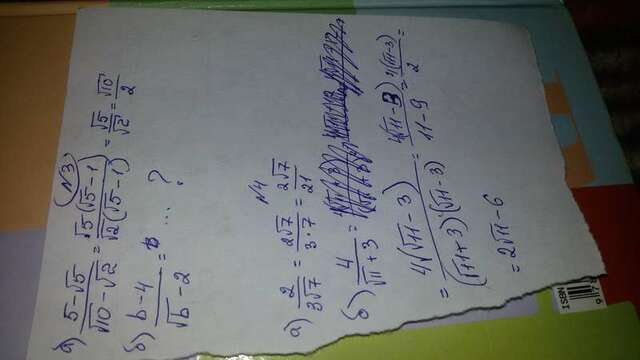 (N3)
а) 5-√5/√10-√2 = √5(√5-1)/√2(√5-1) = √5/√2 = √10/2
б) b-4/√b-2 = ... ?
N4
а) 2/3√7 = 2√7/3·7 = 2√7/21
б) 4/√11+3 =
= 4(√11-3)/(√11+3)·(√11-3) = 4(√11-3)/11-9 = 4(√11-3)/2 =
= 2√11-6
ISBN